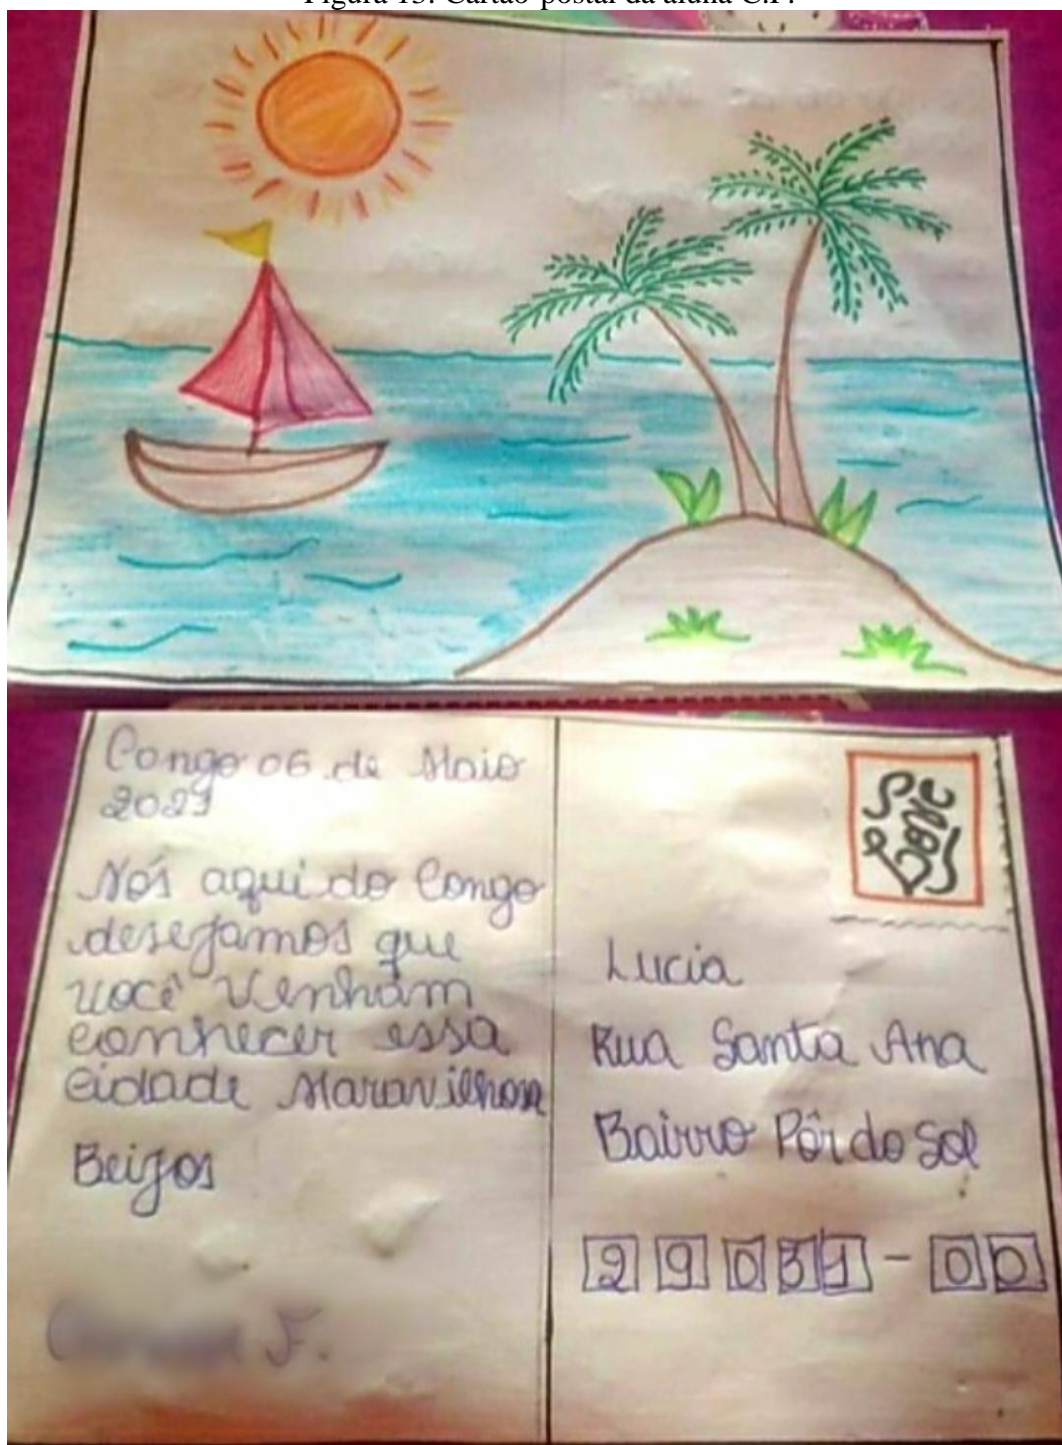 Figura 13: Cartão-postal da aluna C.F.
Congo 06 de Maio
2021
Nós aqui do Congo
desejamos que
você Venham
conhecer essa
cidade Maravilhosa
Beijos
F.
Love
Lucia
Rua Santa Ana
Bairro Pôr do Sol
29031-00